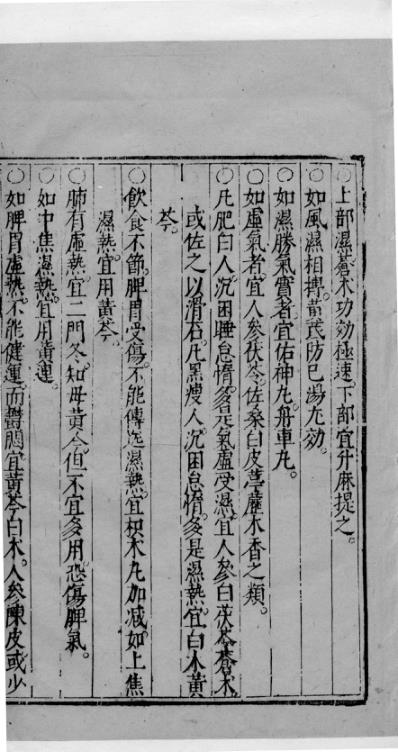 ○上部濕蒼木功効極速下部宜升麻提之。
○如風濕相搏黃茋防已湯尤効。
○如濕勝氣實者宜佑神丸舟車丸。
○如虛氣者宜人參茯苓佐桑白皮葶藶木香之類。
○凡肥白人沉困睡怠惰多是氣虛受濕宜人參白茯苓蒼木
或佐之以滑石。凡黑瘦人沉困怠惰多是濕熱宜白木黃
芩。
○飲食不節脾胃受傷不能傳送濕熱宜枳木丸加減。如上焦
濕熱宜用黃芩。
○肺有虛熱宜二門冬知母黃今但不宜多用恐傷脾氣。
○如中焦濕熱宜用黃連。
○如脾胃虛熱不能健運而鬱悶宜黃芩白木人參陳皮或少